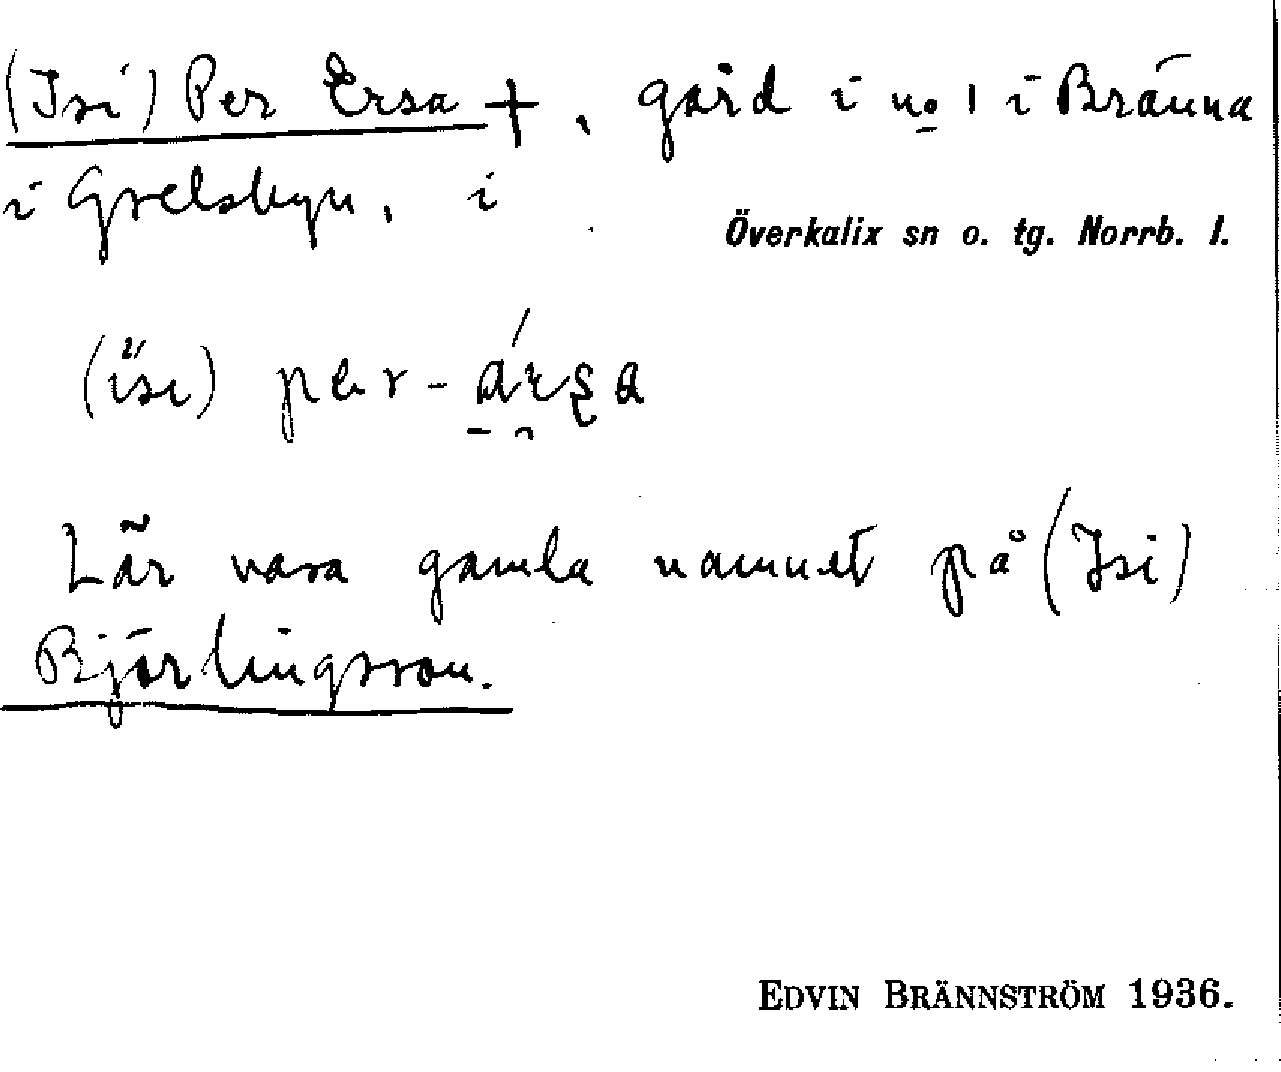 (Isi) Per Ersa +, gård i no 1 i Bränna
i Grelsbyn, i
Överkalix sn o. tg. Norrb. l.
(ısı) per-
Lär vara gamla namnet på (Isi)
Björlingsson.
EDVIN BRÄNNSTRÖM 1936.